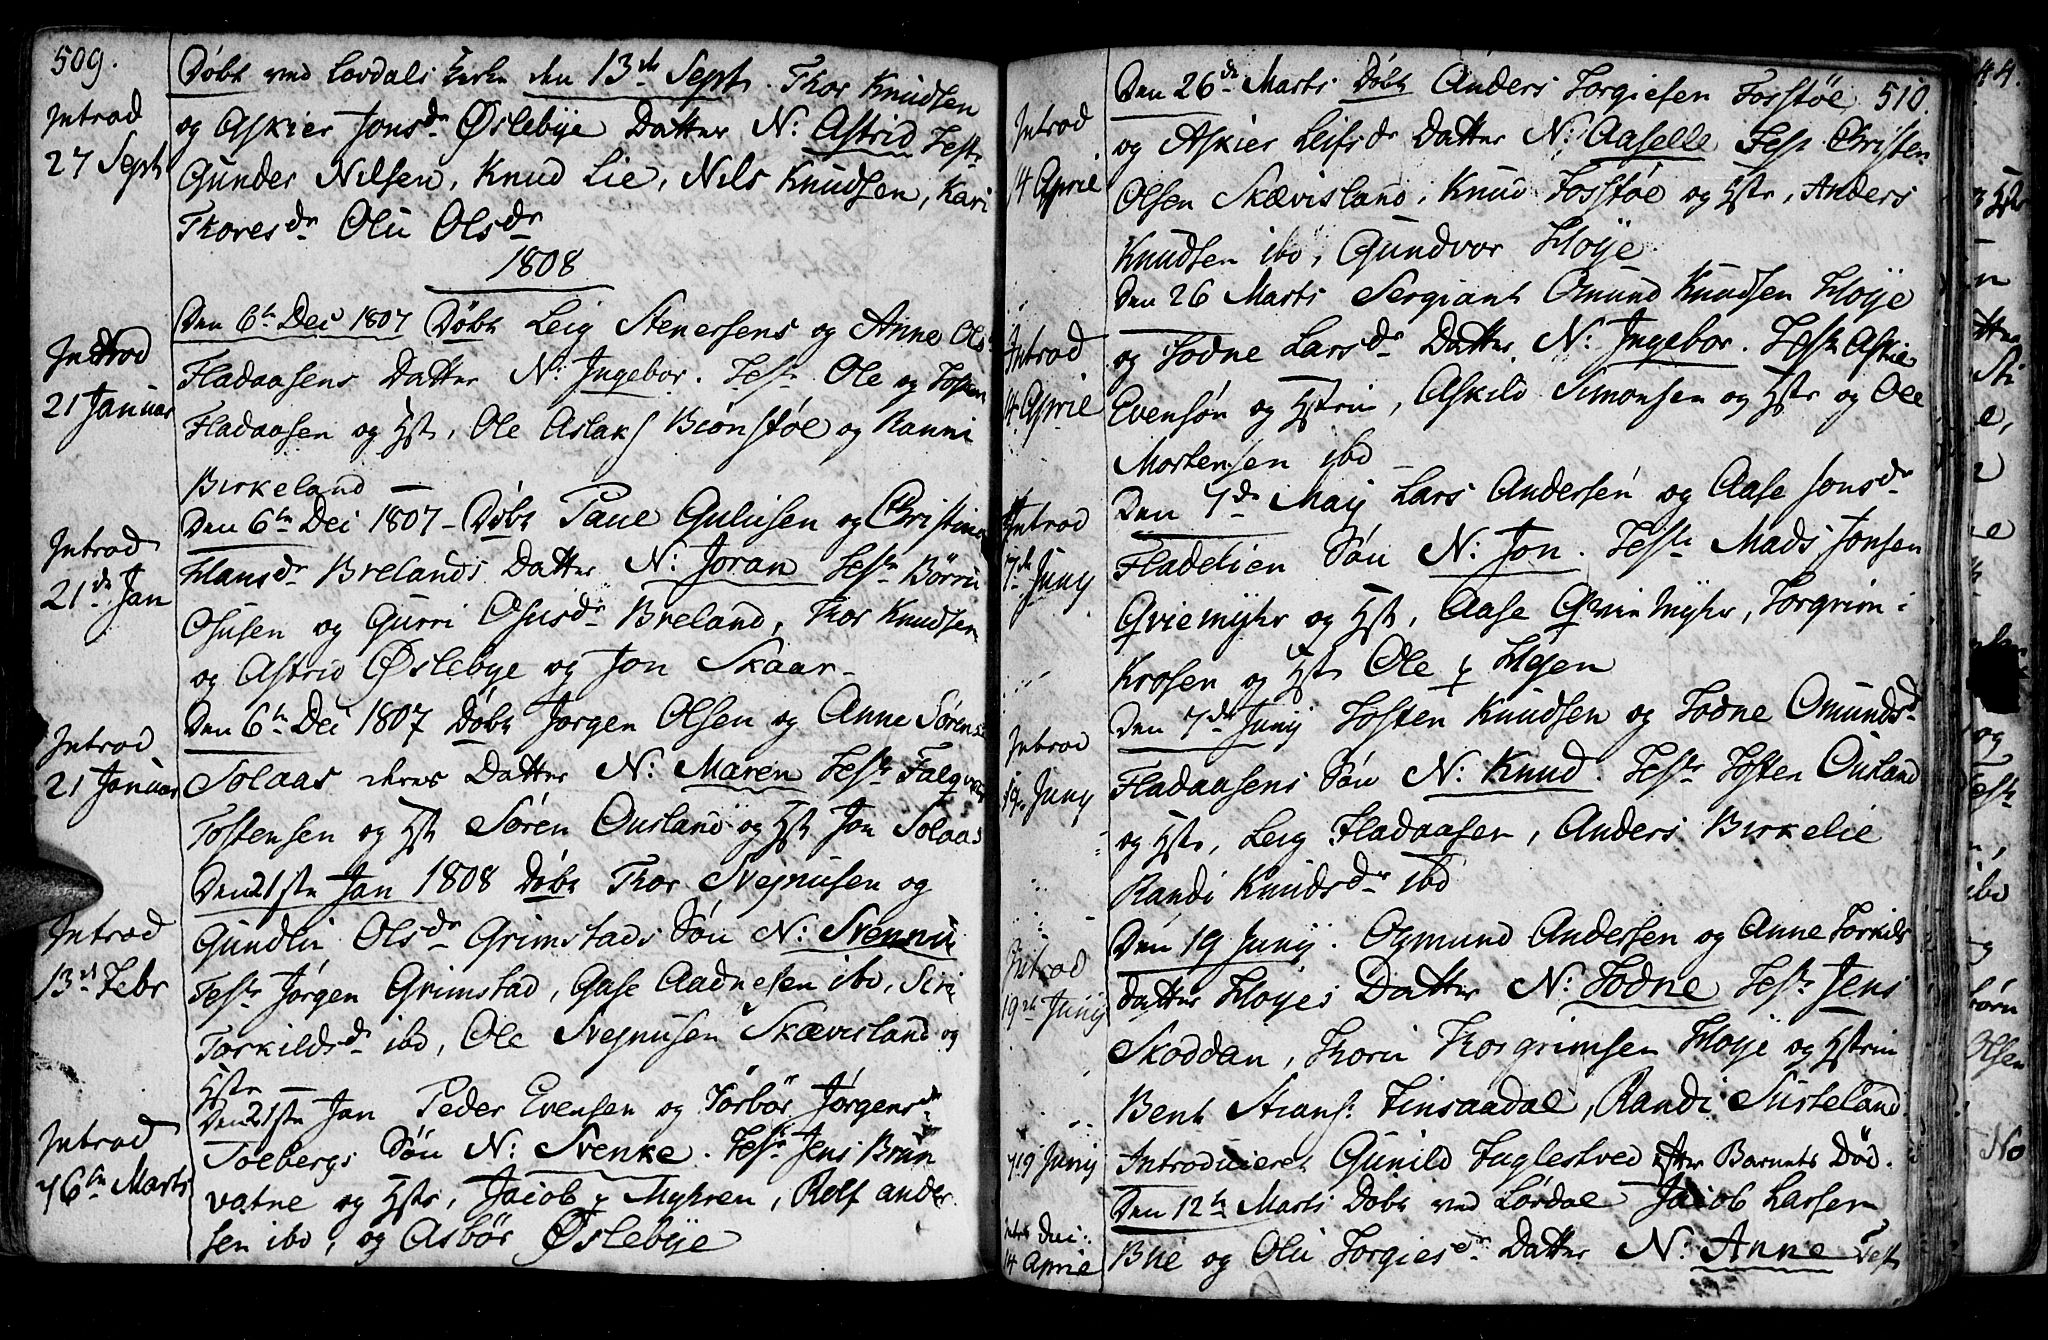 509.
Døbt ved Lovdals Kirke den 13de Sept. Thor Knudsen
Introd
27 Sept
og Askier Jonsdr Øslebye Datter N: Astrid Test:
Gunder Nilsen, Knud Lie, Nils Knudsen, Kari
Thoresdr Oli Olsdr
1808
Den 6te Dec 1807 Døbt Leig Stenersens og Anne Ols
Introd
21 Januar
Fladaasens Datter N: Ingebor. Test: Ole og Tosten
Fladaasen og Hst, Ole Aslaks Biønstøl og Ranni
Birkeland
Introd
21de Jan
Den 6te Dec 1807 - Døbt Paul Gulusen og Christine
Hansdr Brelands Datter N: Joran Test: Börni
Osusen og Gurri Osusdr Breland, Thor Knudsen
og Astrid Øslebye og Jon Skaar
Introd
21 Januar
Den 6te Dec 1807 Døbt Jørgen Olsen og Anne Sørens
Solaas deres Datter N: Maren Test: Falqver
Tostensen og Hst Søren Ousland og Hst Jon Solaas
Den 21ste Jan 1808 Døbt Thor Svejnusen og
Introd
13de Febr
Gundli Olsdr Grimstads Søn N: Svennu
Test: Jørgen Grimstad, Aase Aadnesen ibd, Siri
Torkildsdr ibd, Ole Svejnusen Skævisland og
Hstr
Introd
16te Marts
Den 21ste Jan Peder Evensen og Torbör Jørgensdr
Solbergs Søn N: Svenke. Test: Jens Brun
vatne og Hstr, Jacob p Myhren, Rolf ander
sen ibd, og Asbör Øslebye
510.
Introd
14 April
Den 26de Marts Døbt Anders Torgiesen Fosstøl
og Askier Leifsdr Datter N: Aaselle Test: Christen
Olsen Skævisland, Knud Fosstøl og Hstr, Anders
Knudsen ibd, Gundvor Høye
Introd
14 April
Den 26 Marts Sergiant Omund Knudsen Høye
og Todne Larsdr Datter N: Ingebor. Test: Askie
Evensøn og Hstrue, Askild Simonsen og Hstr og Ole
Mortensen ibd
Introd
7de Juny
Den 7de May Lars Andersen og Aase Jonsdr
Fladelien Søn N: Jon. Test: Mads Jonsen
Qviemyhr og Hst, Aase Qvinmyhr, Torgrim
Krosen og Hst Ole p Hejen
Introd
19. Juny
Den 7de Junij Tosten Knudsen og Todne Omundsd
Fladaasens Søn N: Knud. Test: Tosten Ousland
og Hstr, Leig Fladaasen, Anders Birkelie
Randi Knudsdr ibd
Introd
19de Junij
Den 19 Junij. Ogmund Andersen og Anne Torkilds
datter Høyes Datter N: Todne Test: Jens
Skoddan, Thori Thorgrimsen Høye og Hstrue
Bent Stians. Finsaadal, Randi Susteland
19 Junij
Introduceret Gunild Fuglestved efter Barnets Død.
Den 12te Marts Døbt ved Lovdal Jacob Larsen
14 April
Bue og Oli Torgiesdr Datter N: Anne Test